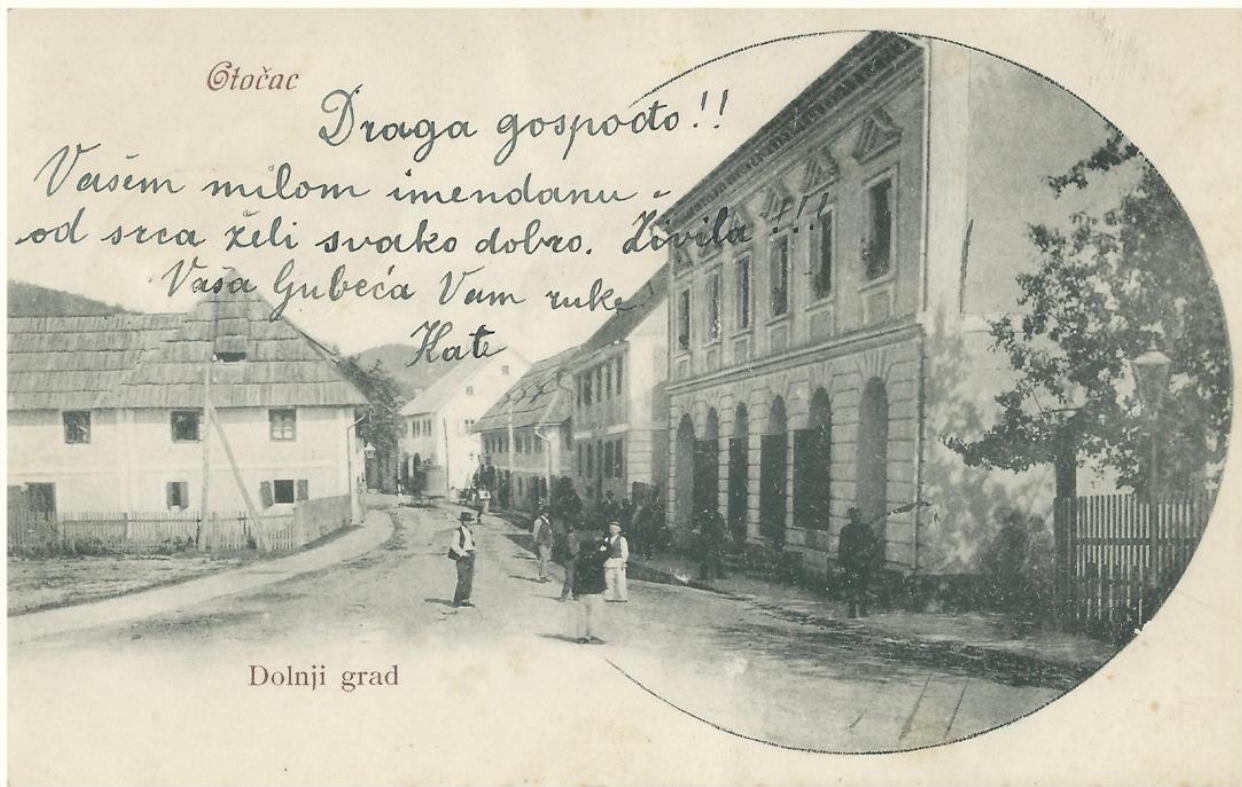 Otočac
Draga gospođo!!
Vašem milom imendanu -
od srca želi svako dobro. Živila !!!
Vaša ljubeća Vam ruke
Kate
Dolnji grad